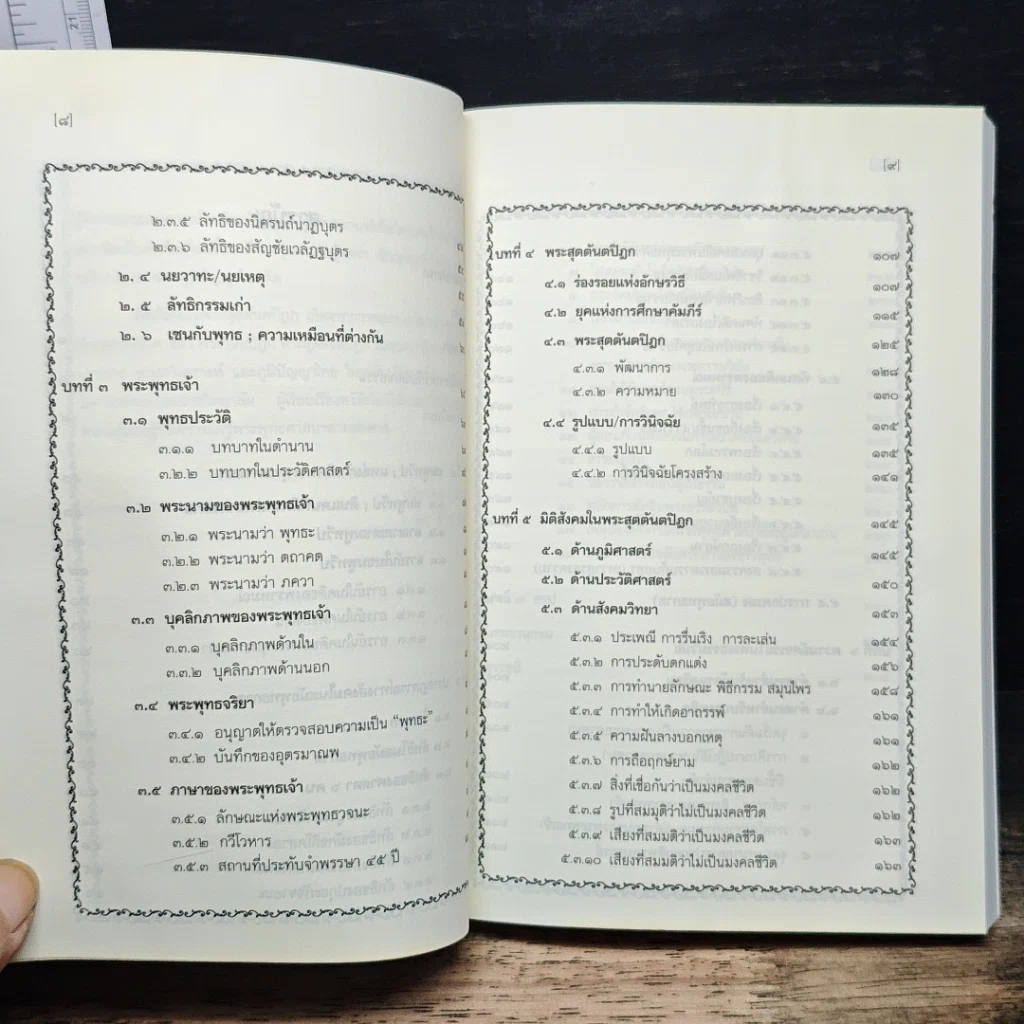 [๘]
๒.๓.๕ ลัทธิของนิครนถ์นาฏบุตร
๒.๓.๖ ลัทธิของสัญชัยเวลัฏฐบุตร
๒. ๔ นยวาทะ/นยเหตุ
๒. ๕ ลัทธิกรรมเก่า
๒. ๖ เชนกับพุทธ ; ความเหมือนที่ต่างกัน
บทที่ ๓ พระพุทธเจ้า
๓.๑ พุทธประวัติ
๓.๑.๑ บทบาทในตำนาน
๓.๒.๒ บทบาทในประวัติศาสตร์
๓.๒ พระนามของพระพุทธเจ้า
๓.๒.๑ พระนามว่า พุทธะ
๓.๒.๒ พระนามว่า ตถาคต
๓.๒.๓ พระนามว่า ภควา
๓.๓ บุคลิกภาพของพระพุทธเจ้า
๓.๓.๑ บุคลิกภาพด้านใน
๓.๓.๒ บุคลิกภาพด้านนอก
๓.๔ พระพุทธจริยา
๓.๔.๑ อนุญาตให้ตรวจสอบความเป็น “พุทธะ”
๓.๔.๒ บันทึกของอุตรมาณพ
๓.๕ ภาษาของพระพุทธเจ้า
๓.๕.๑ ลักษณะแห่งพระพุทธวจนะ
๓.๕.๒ กวีโวหาร
๓.๕.๓ สถานที่ประทับจำพรรษา ๔๕ ปี
[๙]
บทที่ ๔ พระสุตตันตปิฎก ๑๐๗
๔.๑ ร่องรอยแห่งอักษรวิธี ๑๐๗
๔.๒ ยุคแห่งการศึกษาคัมภีร์ ๑๑๕
๔.๓ พระสุตตันตปิฎก ๑๒๕
๔.๓.๑ พัฒนาการ ๑๒๘
๔.๓.๒ ความหมาย ๑๓๐
๔.๔ รูปแบบ/การวินิจฉัย ๑๓๕
๔.๔.๑ รูปแบบ ๑๓๕
๔.๔.๒ การวินิจฉัยโครงสร้าง ๑๔๑
บทที่ ๕ มิติสังคมในพระสุตตันตปิฎก ๑๔๕
๕.๑ ด้านภูมิศาสตร์ ๑๔๕
๕.๒ ด้านประวัติศาสตร์ ๑๕๐
๕.๓ ด้านสังคมวิทยา ๑๕๓
๕.๓.๑ ประเพณี การรื่นเริง การละเล่น ๑๕๔
๕.๓.๒ การประดับตกแต่ง ๑๕๖
๕.๓.๓ การทำนายลักษณะ พิธีกรรม สมุนไพร ๑๕๘
๕.๓.๔ การทำให้เกิดอาถรรพ์ ๑๖๑
๕.๓.๕ ความฝันลางบอกเหตุ ๑๖๑
๕.๓.๖ การถือฤกษ์ยาม ๑๖๒
๕.๓.๗ สิ่งที่เชื่อกันว่าเป็นมงคลชีวิต ๑๖๒
๕.๓.๘ รูปที่สมมุติว่าไม่เป็นมงคลชีวิต ๑๖๒
๕.๓.๙ เสียงที่สมมติว่าเป็นมงคลชีวิต ๑๖๓
๕.๓.๑๐ เสียงที่สมมติว่าไม่เป็นมงคลชีวิต ๑๖๓